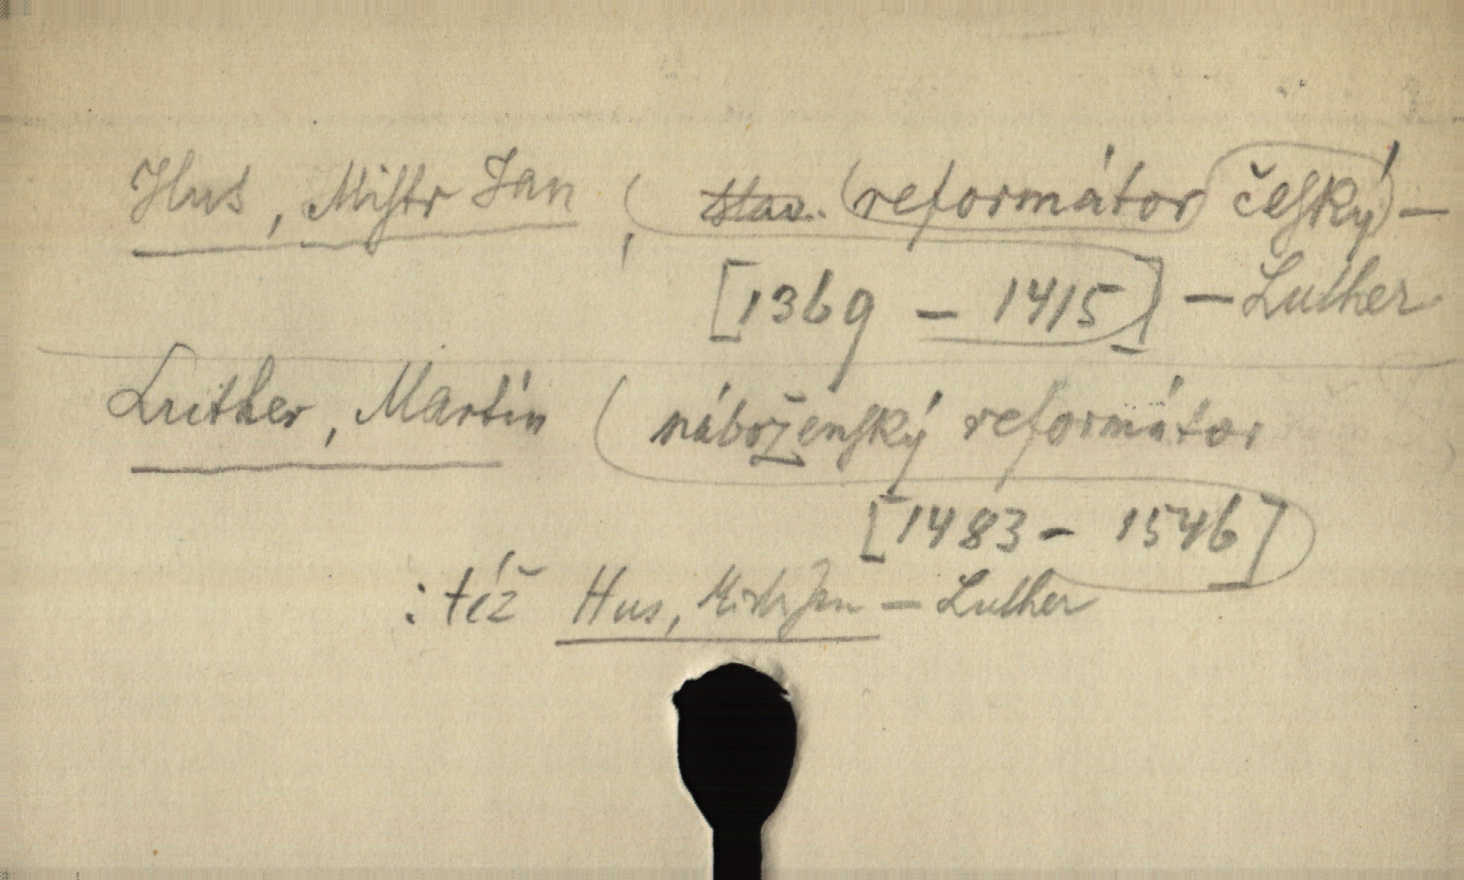 Hus, Mistr Jan, (reformátor český) –
[1369 – 1415] – Luther
Luther, Martin (náboženský reformátor
[1483 – 1546])
: též Hus, Mistr Jan – Luther